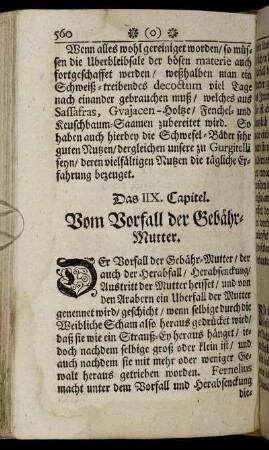 560 (o)
Wenn alles wohl gereiniget worden/ so müs-
sen die Uberbleibsale der bösen materie auch
fortgeschaffet werden/ weßhalben man ein
Schweiß-treibendes decoctum viel Tage
nach einander gebrauchen muß/ welches aus
Sassafras, Gvajacen-Holtze/ Fenchel- und
Keuschbaum-Saamen zubereitet wird. So
haben auch hierbey die Schwefel-Bäder sehr
guten Nutzen/ dergleichen unsere zu Gurgitelli
seyn/ deren vielfältigen Nutzen die tägliche Er-
fahrung bezeuget.
Das IIX. Capitel.
Vom Vorfall der Gebähr-
Mutter.
DEr Vorfall der Gebähr-Mutter/ der
auch der Herabfall/ Herabsenckung/
Austritt der Mutter heisset/ und von
den Arabern ein Uberfall der Mutter
genennet wird/ geschicht/ wenn selbige durch die
Weibliche Scham also heraus gedrücket wird/
daß sie wie ein Strauß-Ey heraus hänget/ je-
doch nachdem selbige groß oder klein ist/ und
auch nachdem sie mit mehr oder weniger Ge-
walt heraus getrieben worden. Fernelius
macht unter dem Vorfall und Herabsenckung
die-